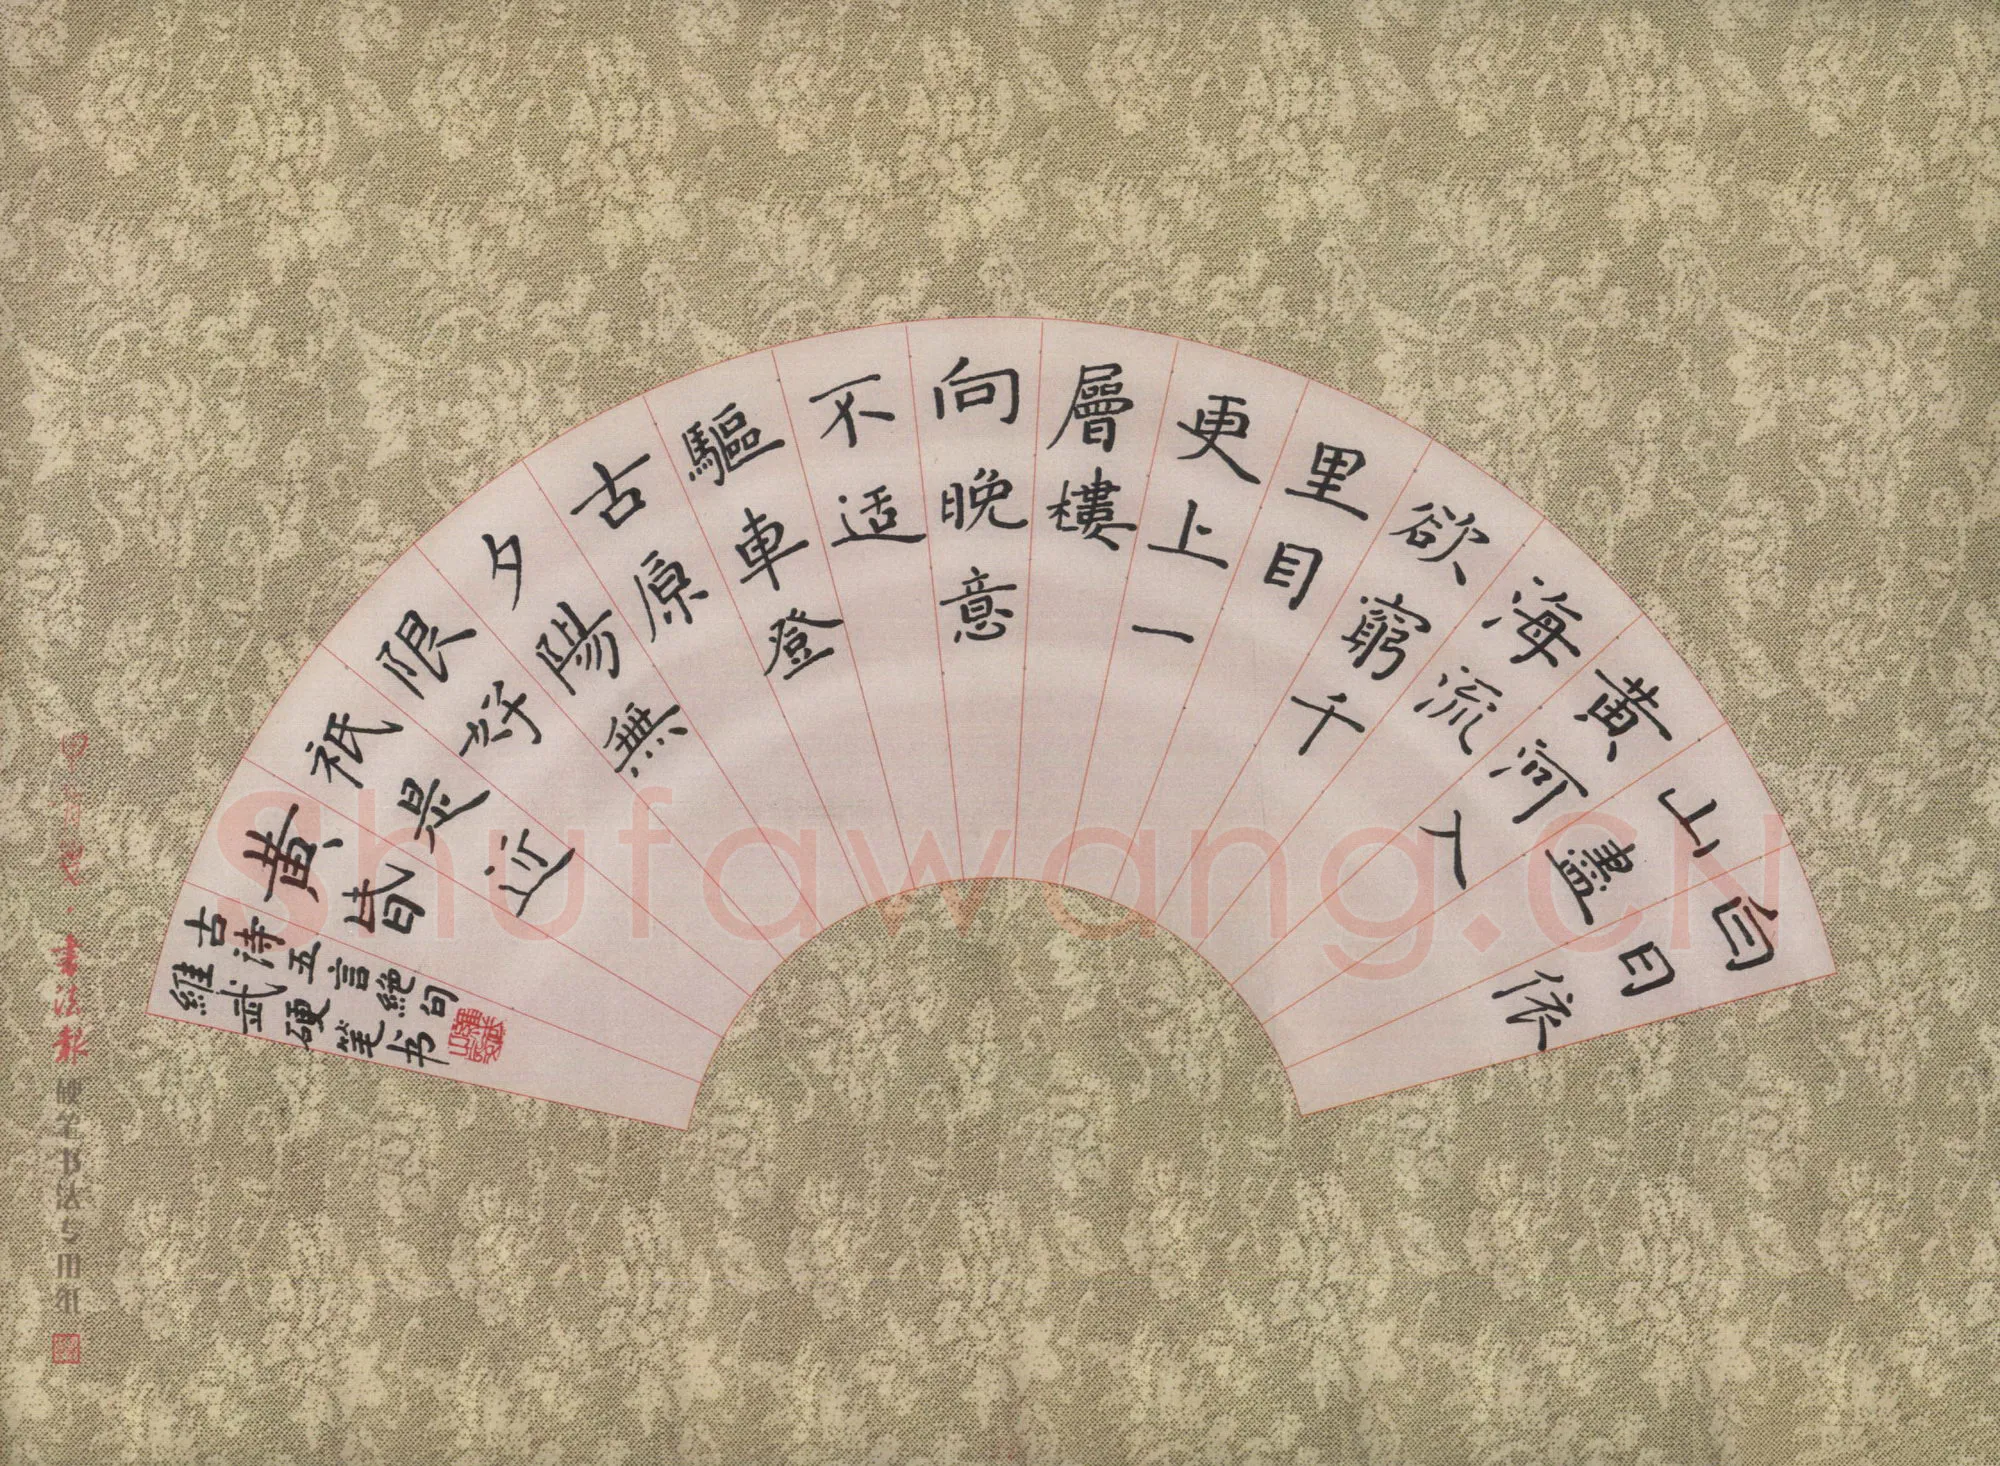 白日依
山盡
黃河入
海流
欲窮千
里目
更上一
層樓
向晚意
不适
驅車登
古原
夕陽無
限好
祇是近
黃昏
古詩五言絕句
維武硬笔书
書法報 硬笔书法专用纸
Shufawang.CN